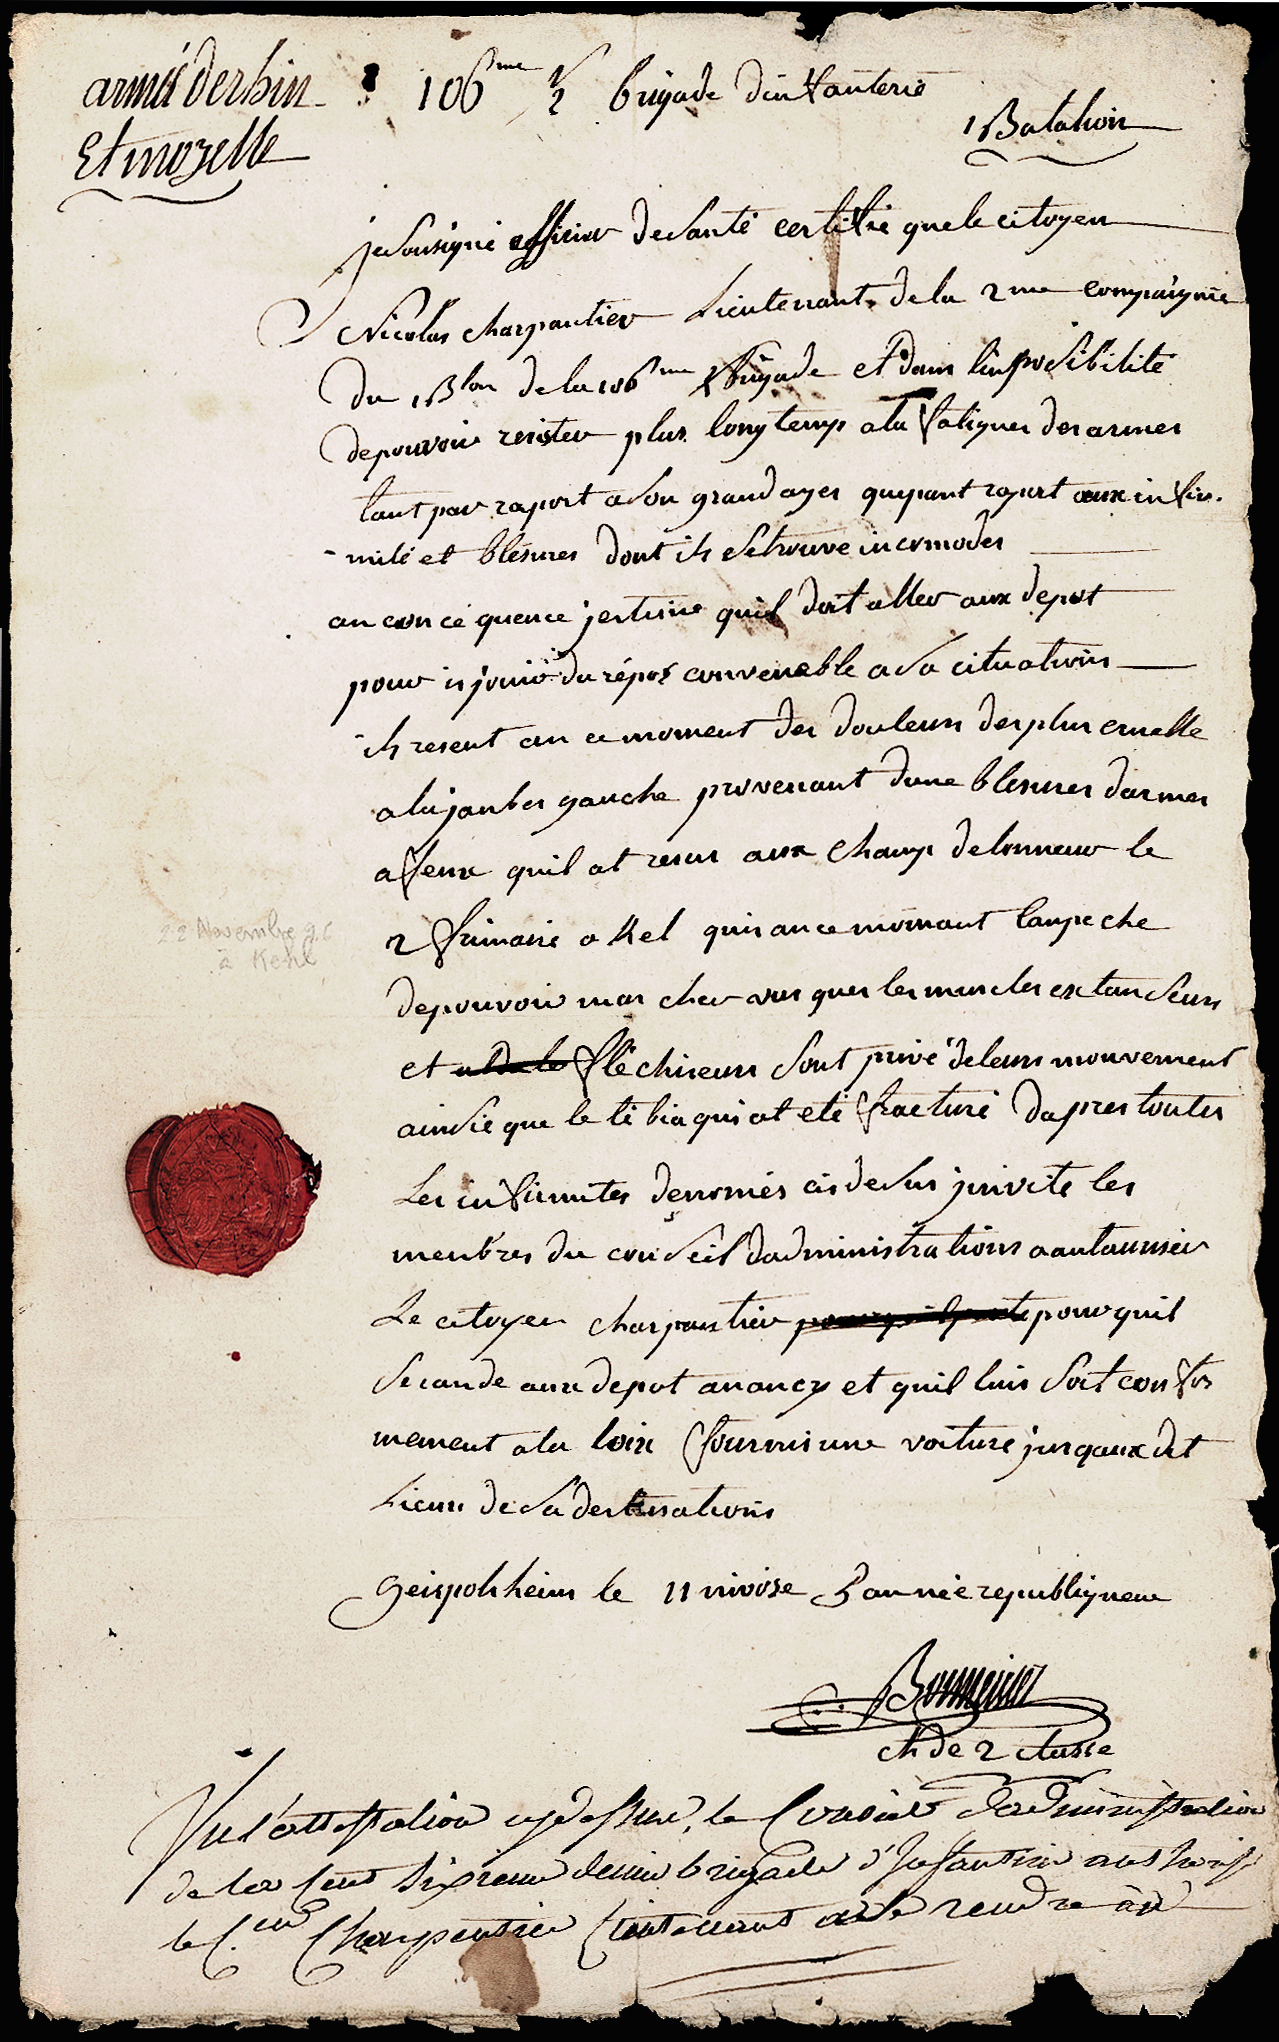 armée derhin
Et mozelle
106me 1/2 brigade dinfanterie
1 Batalion
je sousigné officier de santé certifie que le citoyen
Nicolas charpantier Lieutenant de la 2me compaignie
Du 1 Blon de la 106me 1/2 brigade et dans linposibilité
de pouvoir resister plus longtemp a la fatigues des armes
tant par raport a son grand ages que pant raport aux infir-
mité et blésures dont ils se trouve incomodes
an concéquence jestime quil doit aller aux depot
pour is jouir du répos convenable a sa cituations
ils resent an ce moment des douleurs des plus cruelle
a la janbes gauche provenant dune blesures darmes
a feux quil at resus aux champ de lonneur le
2 frimaire a Kel quis an ce momant lanpeche
22 Novembre 96
à Kehl
de pouvoir marcher vus ques les muscles extanseurs
et fléchiseurs sont privé de leurs mouvement
ainsie que le tibia quis at eté fracturé Dapres toutes
Les infirmites denomés cis desus jinvite les
menbres du conseil dadministrations a autaurisér
Le citoyen charpantier pour quil
se rande aux depot a nancy et quil luis soit confor
mement a la loix fournis une voiture jusqaux dit
Lieux de sa destinations
Geispolsheim le 11 nivôse 5 année republiqueue
ch de 2 classe
Vu l'attestation cy dessus, le Conseil d'administration
de la Cent sixieme demie brigade d'Infanterie authorise
le C.en Charpentier Lieutenant a se rendre au